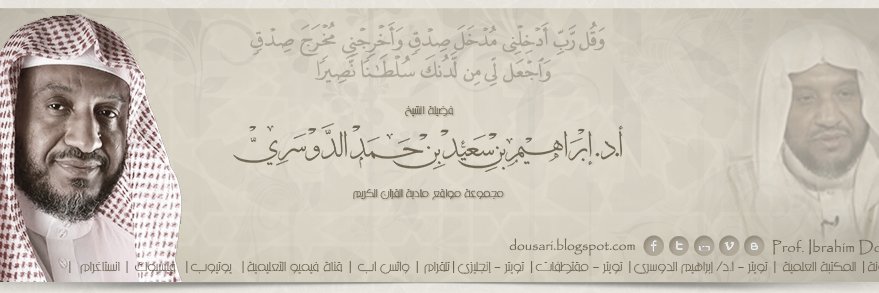 وَقُل رَّبِّ أَدْخِلْنِي مُدْخَلَ صِدْقٍ وَأَخْرِجْنِي مُخْرَجَ صِدْقٍ
وَاجْعَل لِّي مِن لَّدُنكَ سُلْطَانًا نَّصِيرًا
فضيلة الشيخ
أ.د. إبْرَاهِيْم بْن سَعِيْد بْن حَمَد الدَّوْسَرِيّ
مجموعة مواقع مأدبة القرآن الكريم
dousari.blogspot.com
Prof. Ibrahim Do
المكتبة العلمية | تويتر - أ.د/ إبراهيم الدوسري | تويتر - مقتطفات | تويتر - إنجليزي | تلقرام | واتس اب | قناة فيديو التعليمية | يوتيوب | فيسبوك | انستاغرام |